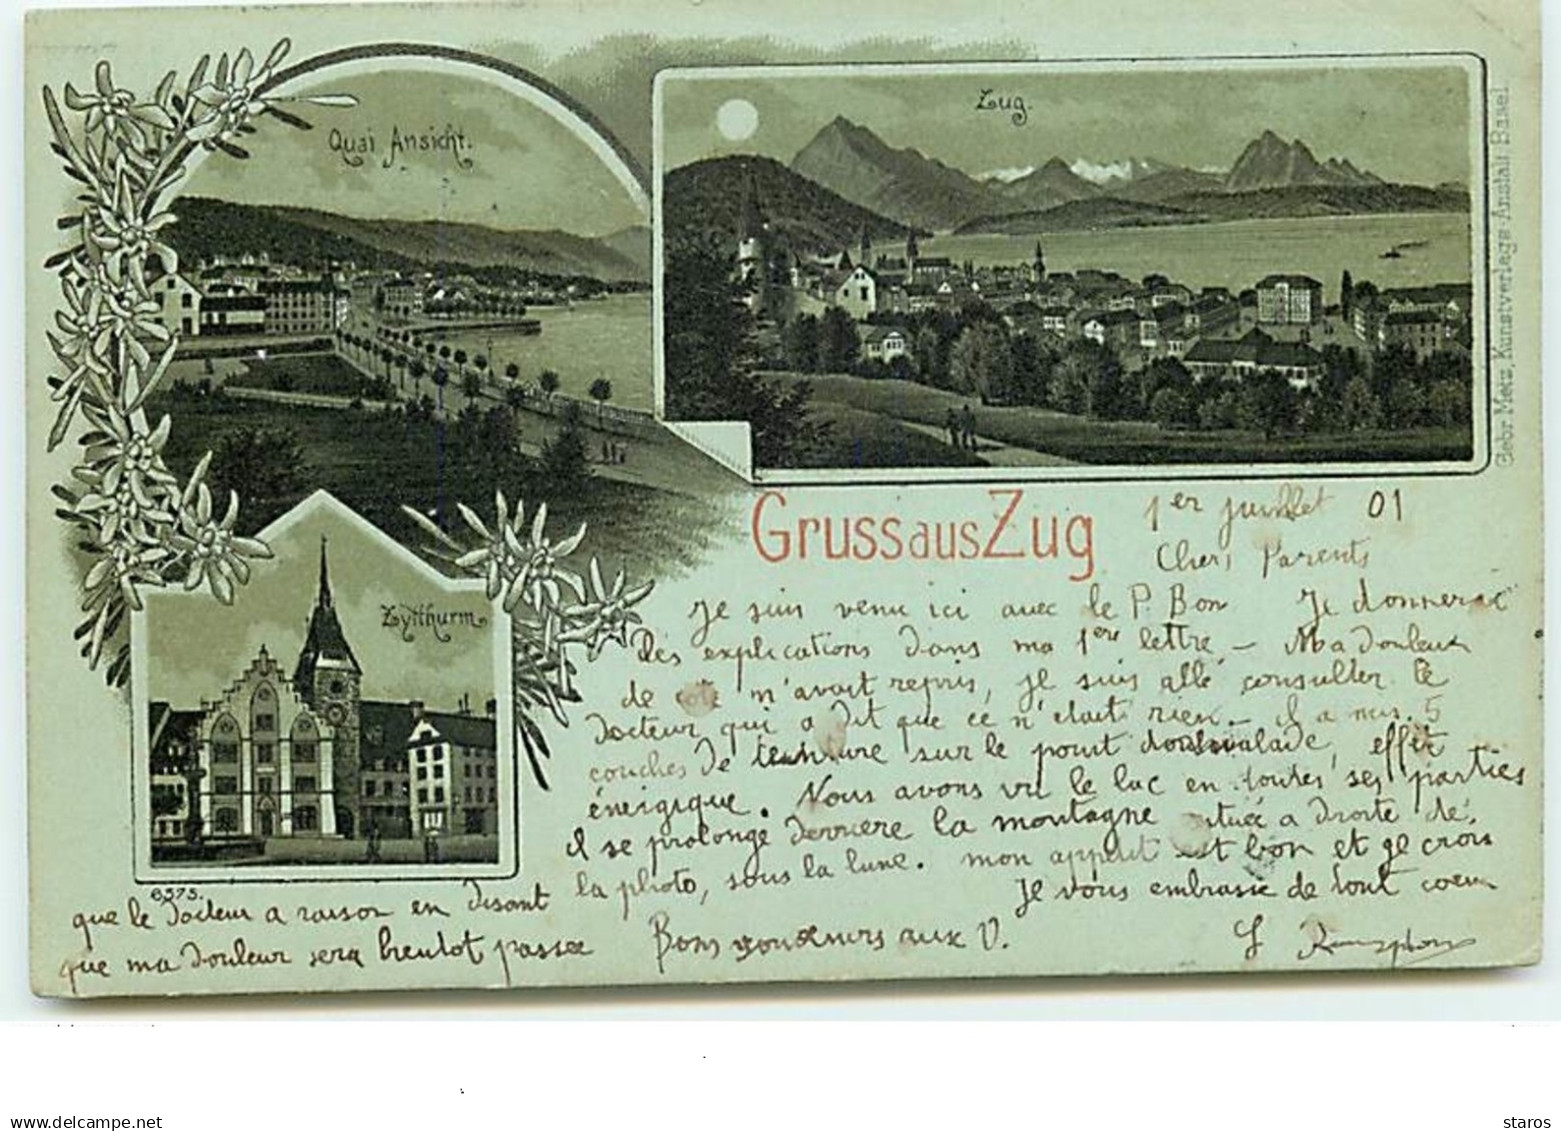 Quai Ansicht.
Zug.
Gebr. Metz, Kunstverlags-Anstalt Basel
Zytthurm
6575.
Gruss aus Zug
1er juillet 01
Chers Parents
Je suis venu ici avec le P. Bon Je donnerai
Des explications Dans ma 1ère lettre - Ma Douleur
de côté m'avait repris, je suis allé consulter le
Docteur qui a Dit que ce n'était rien - il a mis 5
couches De teinture sur le point douloureux malade, effet
énergique. Nous avons vu le lac en toutes ses parties
il se prolonge Derrière la montagne située a Droite de
la photo, sous la lune. mon appétit est bon et je crois
que le Docteur a raison en Disant Je vous embrasse de tout coeur
que ma Douleur sera bientot passée Bons aux V.
delcampe.net
staros